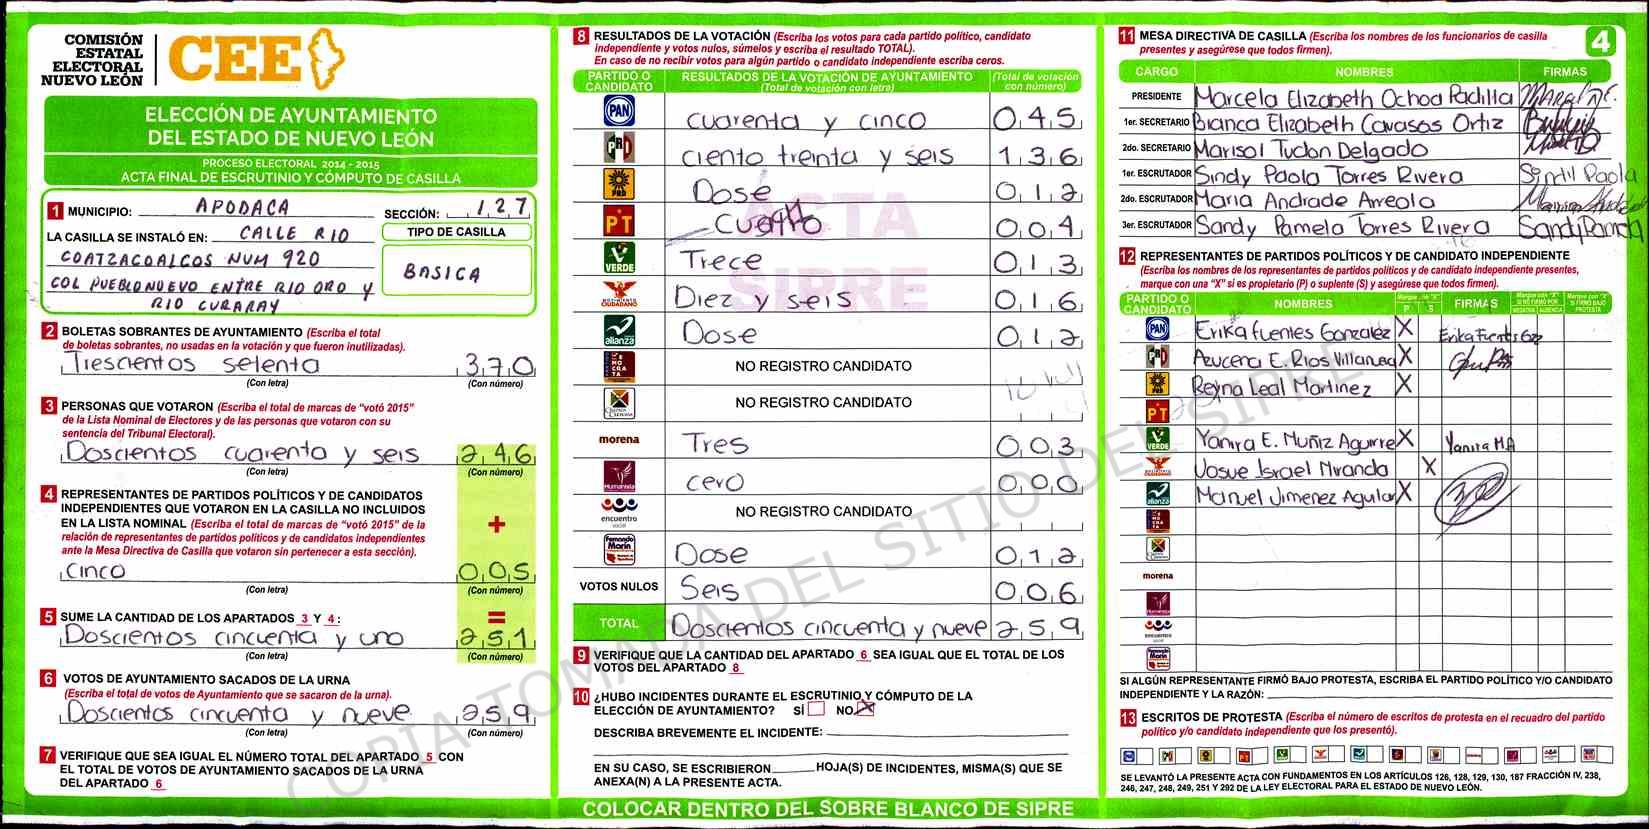 COMISIÓN
ESTATAL
ELECTORAL
NUEVO LEÓN
CEE
ELECCIÓN DE AYUNTAMIENTO
DEL ESTADO DE NUEVO LEÓN
PROCESO ELECTORAL 2014 - 2015
ACTA FINAL DE ESCRUTINIO Y CÓMPUTO DE CASILLA
1 MUNICIPIO: APODACA SECCIÓN: 127
LA CASILLA SE INSTALÓ EN: CALLE RIO
COATZACOALCOS NUM 920
COL PUEBLO NUEVO ENTRE RIO ORO Y
RIO CURARAY
TIPO DE CASILLA
BASICA
2 BOLETAS SOBRANTES DE AYUNTAMIENTO (Escriba el total
de boletas sobrantes, no usadas en la votación y que fueron inutilizadas).
Trescientos setenta 370
(Con letra) (Con número)
3 PERSONAS QUE VOTARON (Escriba el total de marcas de "votó 2015"
de la Lista Nominal de Electores y de las personas que votaron con su
sentencia del Tribunal Electoral).
Doscientos cuarenta y seis 246
(Con letra) (Con número)
4 REPRESENTANTES DE PARTIDOS POLÍTICOS Y DE CANDIDATOS
INDEPENDIENTES QUE VOTARON EN LA CASILLA NO INCLUIDOS
EN LA LISTA NOMINAL (Escriba el total de marcas de "votó 2015" de la
relación de representantes de partidos políticos y de candidatos independientes
ante la Mesa Directiva de Casilla que votaron sin pertenecer a esta sección).
+
cinco 005
(Con letra) (Con número)
5 SUME LA CANTIDAD DE LOS APARTADOS 3 Y 4: =
Doscientos cincuenta y uno 251
(Con letra) (Con número)
6 VOTOS DE AYUNTAMIENTO SACADOS DE LA URNA
(Escriba el total de votos de Ayuntamiento que se sacaron de la urna).
Doscientos cincuenta y nueve 259
(Con letra) (Con número)
7 VERIFIQUE QUE SEA IGUAL EL NÚMERO TOTAL DEL APARTADO 5 CON
EL TOTAL DE VOTOS DE AYUNTAMIENTO SACADOS DE LA URNA
DEL APARTADO 6
8 RESULTADOS DE LA VOTACIÓN (Escriba los votos para cada partido político, candidato
independiente y votos nulos, súmelos y escriba el resultado TOTAL).
En caso de no recibir votos para algún partido o candidato independiente escriba ceros.
PARTIDO O CANDIDATO RESULTADOS DE LA VOTACIÓN DE AYUNTAMIENTO (Total de votación con letra) (Total de votación con número)
PAN cuarenta y cinco 045
PRI ciento treinta y seis 136
PRD Dose 012
PT Cuatro 004
VERDE Trece 013
MOVIMIENTO CIUDADANO Diez y seis 016
alianza Dose 012
DEMOCRATA NO REGISTRO CANDIDATO
CRUZADA CIUDADANA NO REGISTRO CANDIDATO
morena Tres 003
Humanista cero 000
encuentro social NO REGISTRO CANDIDATO
Fernando Marín Dose 012
VOTOS NULOS Seis 006
TOTAL Doscientos cincuenta y nueve 259
ACTA
SIPRE
9 VERIFIQUE QUE LA CANTIDAD DEL APARTADO 6 SEA IGUAL QUE EL TOTAL DE LOS
VOTOS DEL APARTADO 8
10 ¿HUBO INCIDENTES DURANTE EL ESCRUTINIO Y CÓMPUTO DE LA
ELECCIÓN DE AYUNTAMIENTO? SÍ NO X
DESCRIBA BREVEMENTE EL INCIDENTE:
EN SU CASO, SE ESCRIBIERON HOJA(S) DE INCIDENTES, MISMA(S) QUE SE
ANEXA(N) A LA PRESENTE ACTA.
COLOCAR DENTRO DEL SOBRE BLANCO DE SIPRE
11 MESA DIRECTIVA DE CASILLA (Escriba los nombres de los funcionarios de casilla
presentes y asegúrese que todos firmen).
4
CARGO NOMBRES FIRMAS
PRESIDENTE Marcela Elizabeth Ochoa Padilla
1er. SECRETARIO Bianca Elizabeth Cavasos Ortiz
2do. SECRETARIO Marisol Tudon Delgado
1er. ESCRUTADOR Sindy Paola Torres Rivera
2do. ESCRUTADOR Maria Andrade Arreola
3er. ESCRUTADOR Sandy Pamela Torres Rivera
12 REPRESENTANTES DE PARTIDOS POLÍTICOS Y DE CANDIDATO INDEPENDIENTE
(Escriba los nombres de los representantes de partidos políticos y de candidato independiente presentes,
marque con una "X" si es propietario (P) o suplente (S) y asegúrese que todos firmen).
PARTIDO O CANDIDATO NOMBRES Marque con "X" P S FIRMAS Marque con "X" SI NO FIRMÓ POR NEGATIVA AUSENCIA Marque con "X" SI FIRMÓ BAJO PROTESTA
PAN Erika Fuentes Gonzalez X Erika Fuentes Gzz
PRI Azucena E. Rios Villarreal X
PRD Reyna Leal Martinez X
PT
VERDE Yanira E. Muñiz Aguirre X Yanira M.A
Josue Israel Miranda X
alianza Manuel Jimenez Aguilar X
morena
Humanista
encuentro social
SI ALGÚN REPRESENTANTE FIRMÓ BAJO PROTESTA, ESCRIBA EL PARTIDO POLÍTICO Y/O CANDIDATO
INDEPENDIENTE Y LA RAZÓN:
13 ESCRITOS DE PROTESTA (Escriba el número de escritos de protesta en el recuadro del partido
político y/o candidato independiente que los presentó).
SE LEVANTÓ LA PRESENTE ACTA CON FUNDAMENTOS EN LOS ARTÍCULOS 126, 128, 129, 130, 187 FRACCIÓN IV, 238,
246, 247, 248, 249, 251 Y 292 DE LA LEY ELECTORAL PARA EL ESTADO DE NUEVO LEÓN.
COPIA TOMADA DEL SITIO DEL SIPRE